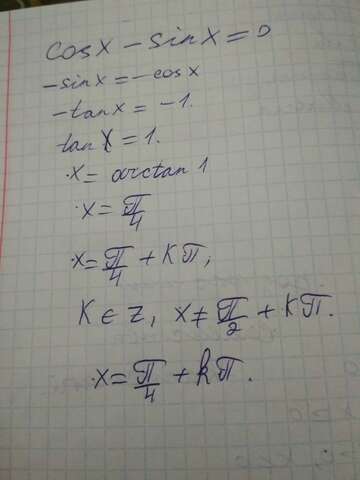 cosx - sinx = 0
-sinx = -cosx
-tanx = -1.
tanx = 1.
x = arctan 1
x = π/4
x = π/4 + kπ,
k ∈ z, x ≠ π/2 + kπ.
x = π/4 + kπ.